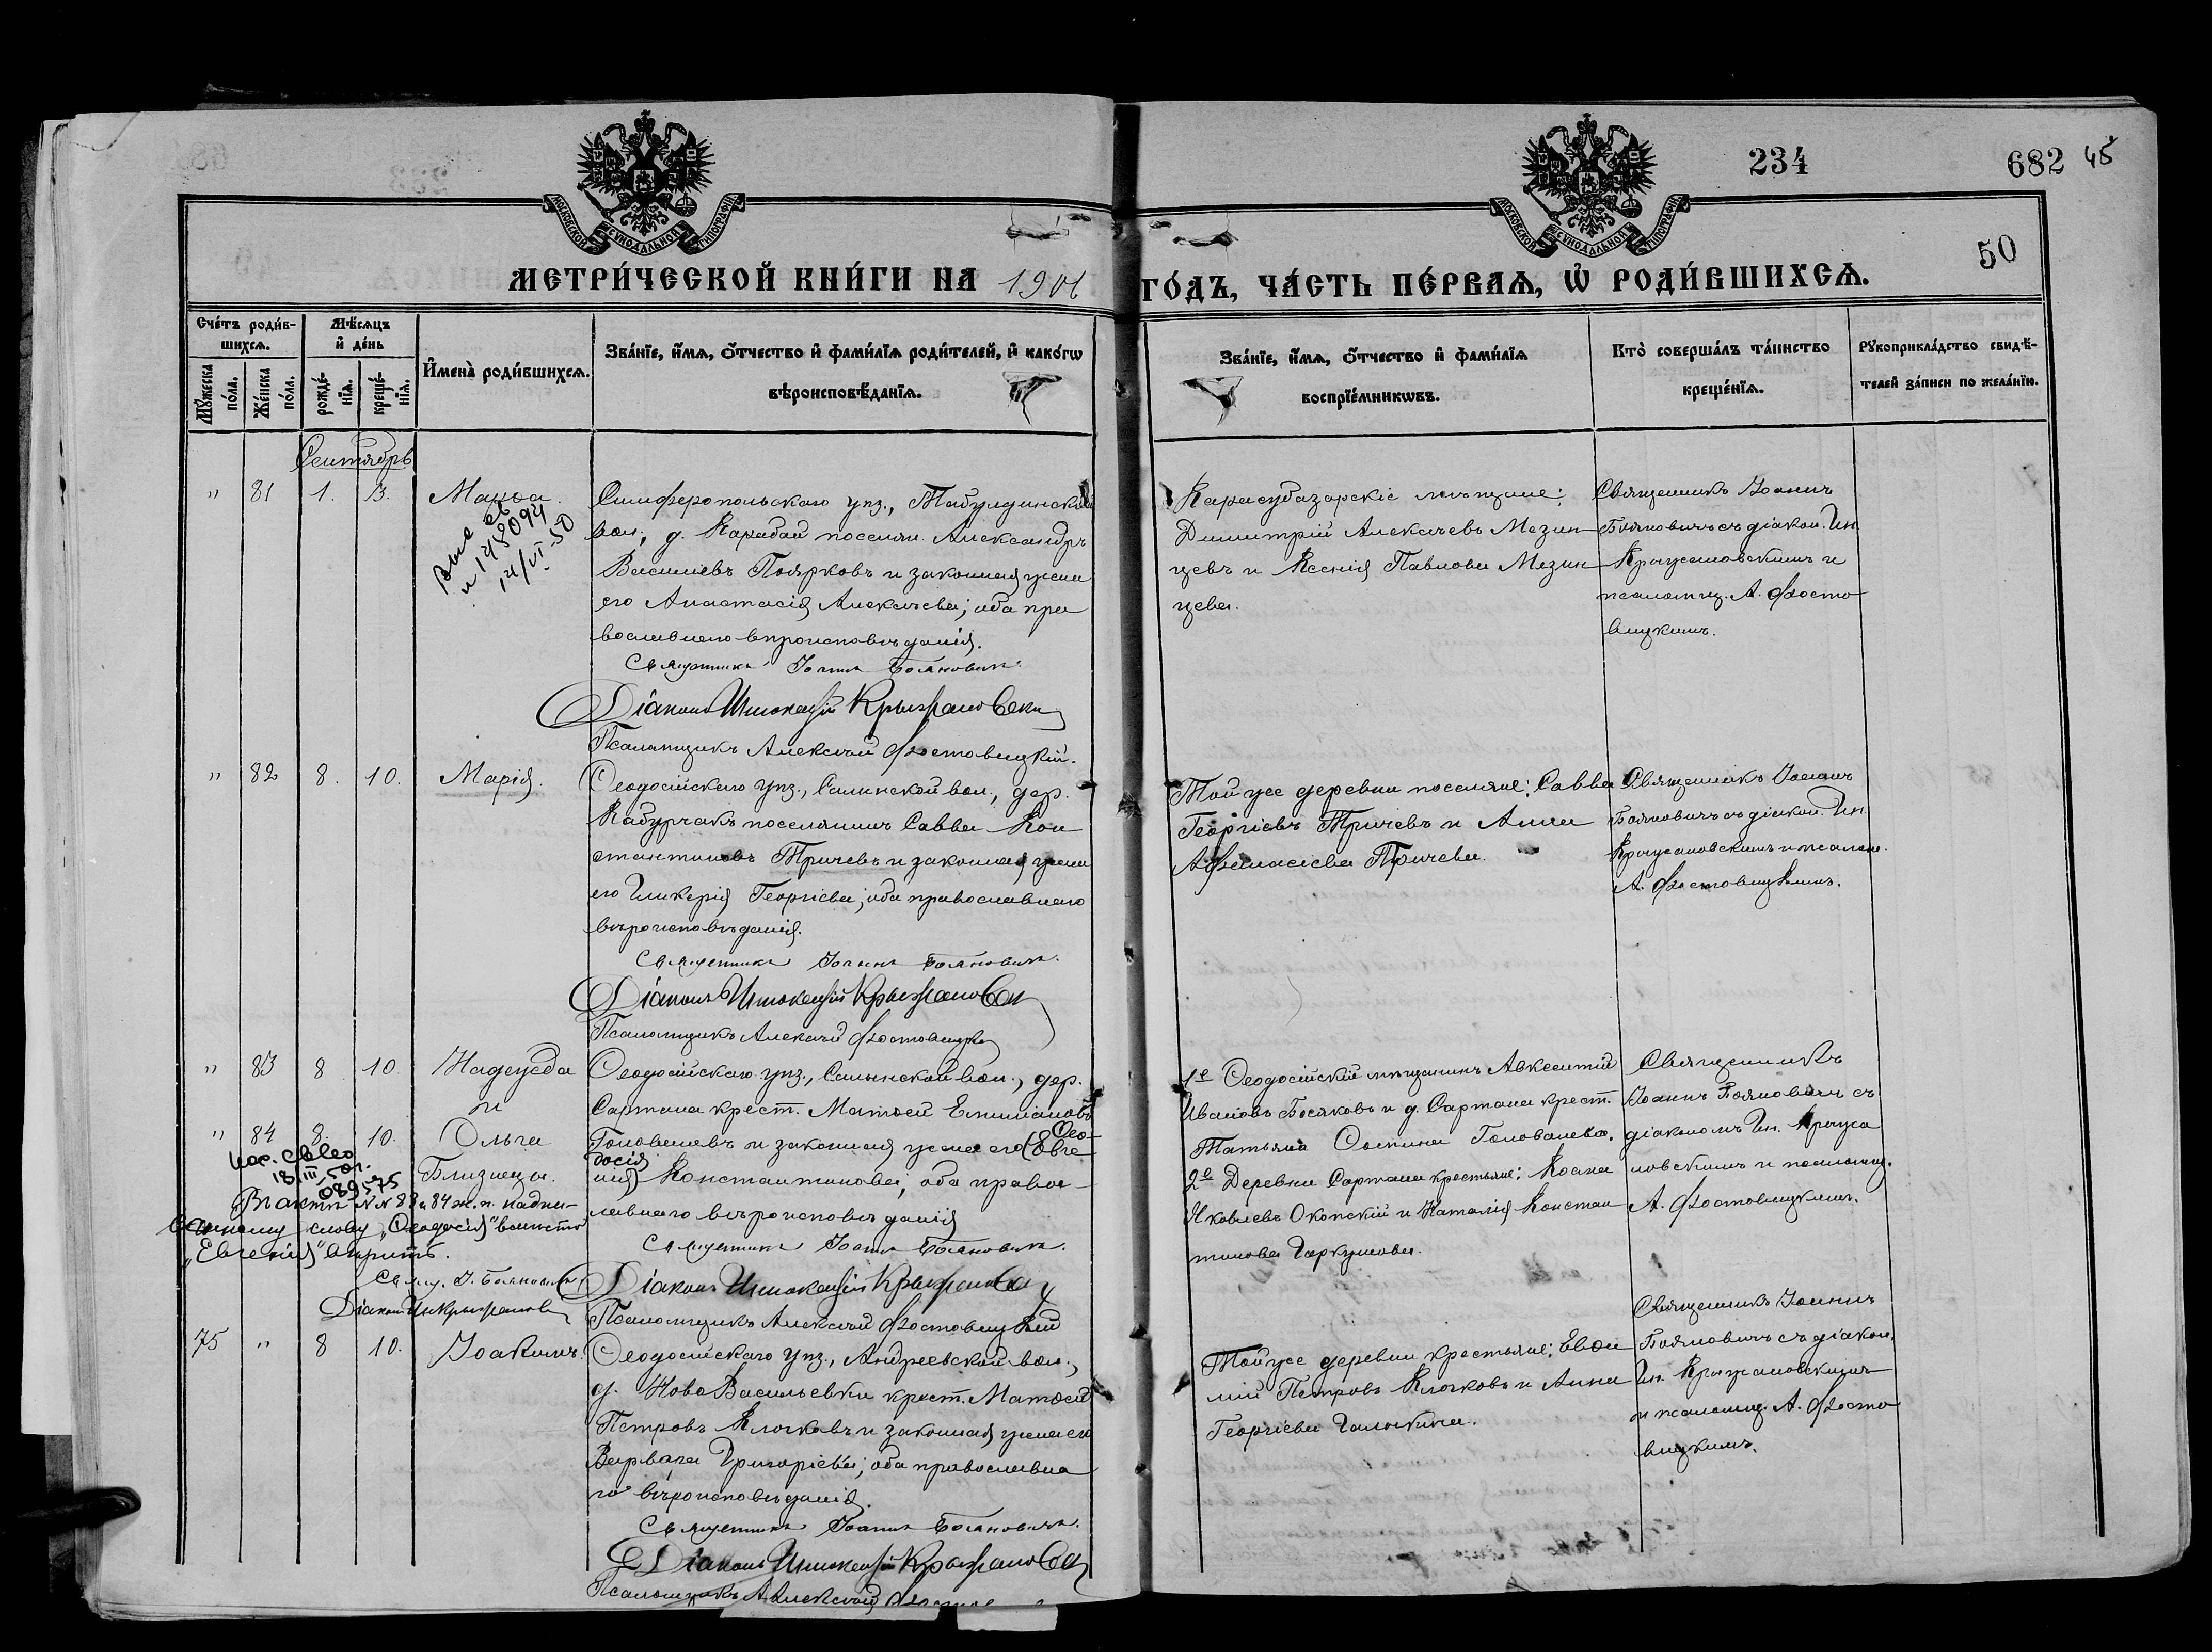 234
682 45
50
МОСКОВСКОЙ СѴНОДАЛЬНОЙ ТИПОГРАФІИ
МОСКОВСКОЙ СѴНОДАЛЬНОЙ ТИПОГРАФІИ
МЕТРИ́ЧЕСКОЙ КНИ́ГИ НА 1906 ГО́ДЪ, ЧА́СТЬ ПЕ́РВАѦ, Ѡ҆ РОДИ́ВШИХСѦ.
Сче́тъ роди́в-
шихсѧ.
Мꙋ́жеска по́ла.
Же́нска по́ла.
Мѣ́сѧцъ и҆ де́нь
рожде́-нїѧ.
креще́-нїѧ.
И҆мена̀ роди́вшихсѧ.
Зва́нїе, и҆́мѧ, ѻ҆́тчество и҆ фами́лїѧ роди́телей, и҆ како́гѡ
вѣроисповѣ́данїѧ.
Зва́нїе, и҆́мѧ, ѻ҆́тчество и҆ фами́лїѧ
воспрїе́мникѡвъ.
Кто̀ соверша́лъ та́инство
креще́нїѧ.
Рꙋкоприкла́дство свидѣ́-
телей за́писи по жела́нїю.
Сентябрь
" 81 1. 3.
Симферопольскаго уѣз., Табулдинской
вол., д. Карабай поселян. Александръ
Васильевъ Поярковъ и законная жена
его Анастасія Алексѣева; оба пра
вославнаго вѣроисповѣданія.
Священникъ Іоаннъ Бояновичъ.
Діаконъ Иннокентій Крыжановскій
Псаломщикъ Алексѣй Фостовицкій.
Карасубазарскіе мѣщане:
Димитрій Алексѣевъ Мезин
цевъ и Ксенія Павлова Мезин
цева.
Священникъ Іоаннъ
Бояновичъ съ діакон. Ин.
Крыжановскимъ и
псаломщ. А. Фосто
вицкимъ.
14/VI-50
" 82 8. 10. Марія.
Ѳеодосійскаго уѣз., Салынской вол., дер.
Кабурчакъ поселянинъ Савва Кон
стантиновъ Тричевъ и законная жена
его Гликерія Георгіева; оба православнаго
вѣроисповѣданія.
Священникъ Іоаннъ Бояновичъ.
Діаконъ Иннокентій Крыжановскій
Псаломщикъ Алексѣй Фостовицкій
Той же деревни поселяне: Савва
Георгіевъ Тричевъ и Анна
Афанасіева Тричева.
Священникъ Іоаннъ
Бояновичъ съ діакон. Ин.
Крыжановскимъ и псалом.
А. Фостовицкимъ.
" 83 8 10. Надежда
и
" 84 8. 10. Ольга
Близнецы.
Ѳеодосійскаго уѣз., Салынской вол., дер.
Сартана крест. Матѳей Емиліановъ
Головачевъ и законная жена его (Евге
Ѳео-
досія
нія) Константинова, оба правос-
лавнаго вѣроисповѣданія
Священникъ Іоаннъ Бояновичъ.
Діаконъ Иннокентій Крыжановскій
Псаломщикъ Алексѣй Фостовицкій
1е Ѳеодосійскій мѣщанинъ Авксентій
Ивановъ Босяковъ и д. Сартана крест.
Татьяна Головачева.
2е Деревни Сартана крестьяне:
Яковлевъ Окопскій и Наталія Констан
тинова
Священникъ
Іоаннъ Бояновичъ съ
діакономъ Ин. Крыжа
новскимъ и псаломщ.
А. Фостовицкимъ.
18.III.50г.
089575
В актѣ №№ 83 и 84 ж. п. надпи-
санному слову „Ѳеодосія" вмѣсто
„Евгенія" вѣрить.
Свящ. І. Бояновичъ
Діаконъ Ин. Крыжановскій
75 " 8 10. Іоакимъ.
Ѳеодосійскаго уѣз., Андреевской вол.,
д. Ново Васильевки крест. Матѳей
Петровъ Клочковъ и законная жена его
Варвара Григоріева; оба православна
го вѣроисповѣданія.
Священникъ Іоаннъ Бояновичъ.
Діаконъ Иннокентій Крыжановскій
Псаломщикъ Алексѣй
Той же деревни крестьяне: Евѳи
мій Петровъ Клочковъ и Анна
Георгіева Галкина.
Священникъ Іоаннъ
Бояновичъ съ діакон.
Ин. Крыжановскимъ
и псаломщ. А. Фосто
вицкимъ.